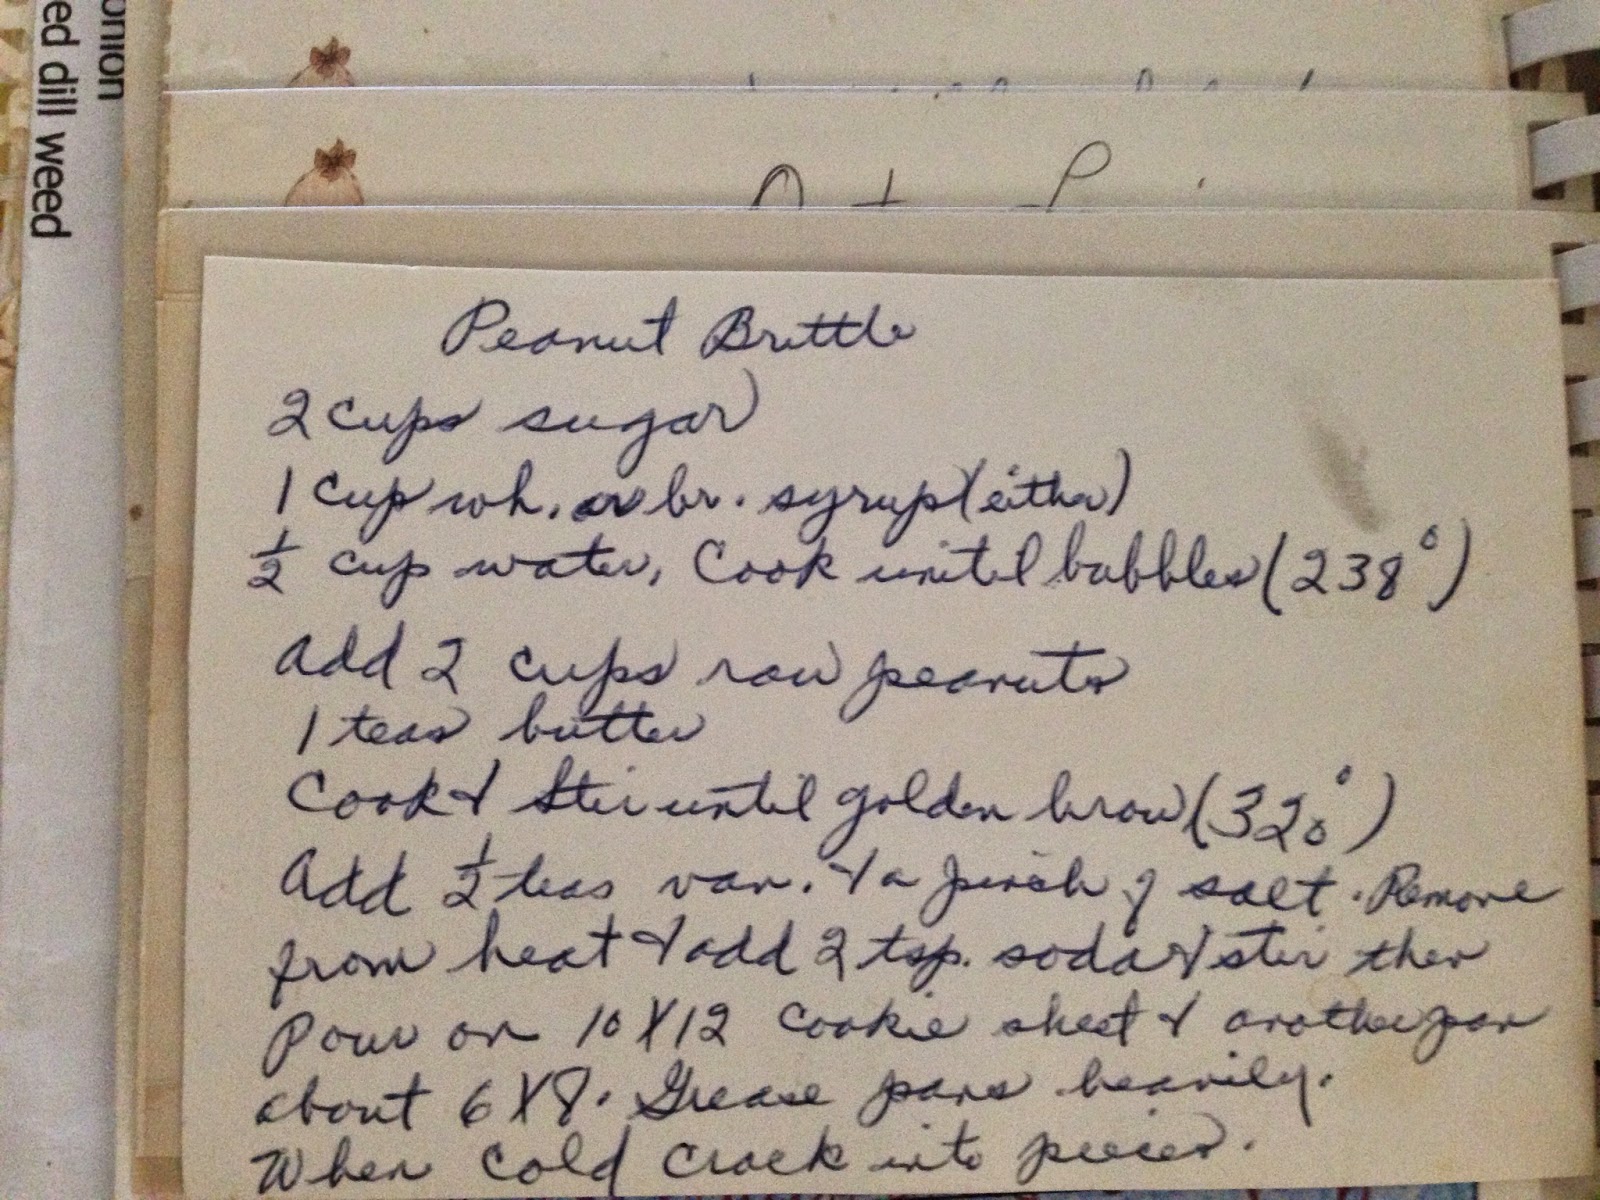 onion
ed dill weed
Peanut Brittle
2 cups sugar
1 cup wh. or br. syrup (either)
1/2 cup water, Cook until bubbles (238°)
Add 2 cups raw peanuts
1 teas butter
Cook & stir until golden brow (320°)
Add 1/2 teas van. & a pinch of salt. Remove
from heat & add 2 tsp. soda & stir then
Pour on 10 X 12 cookie sheet & another pan
about 6 X 8. Grease pans heavily.
When cold crack into pieces.